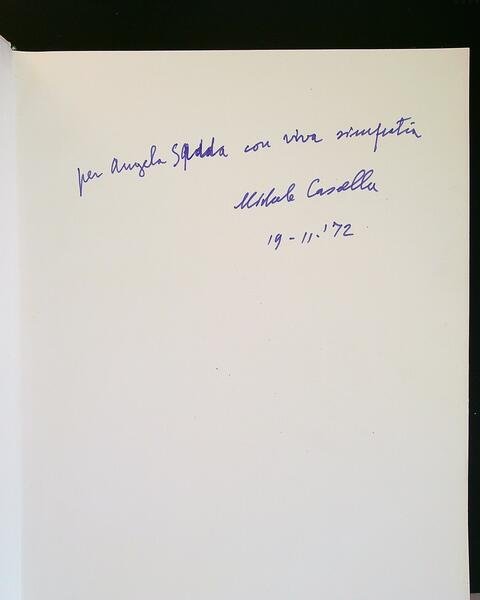 per Angela Sadda con viva simpatia
Michele Casella
19-11-'72